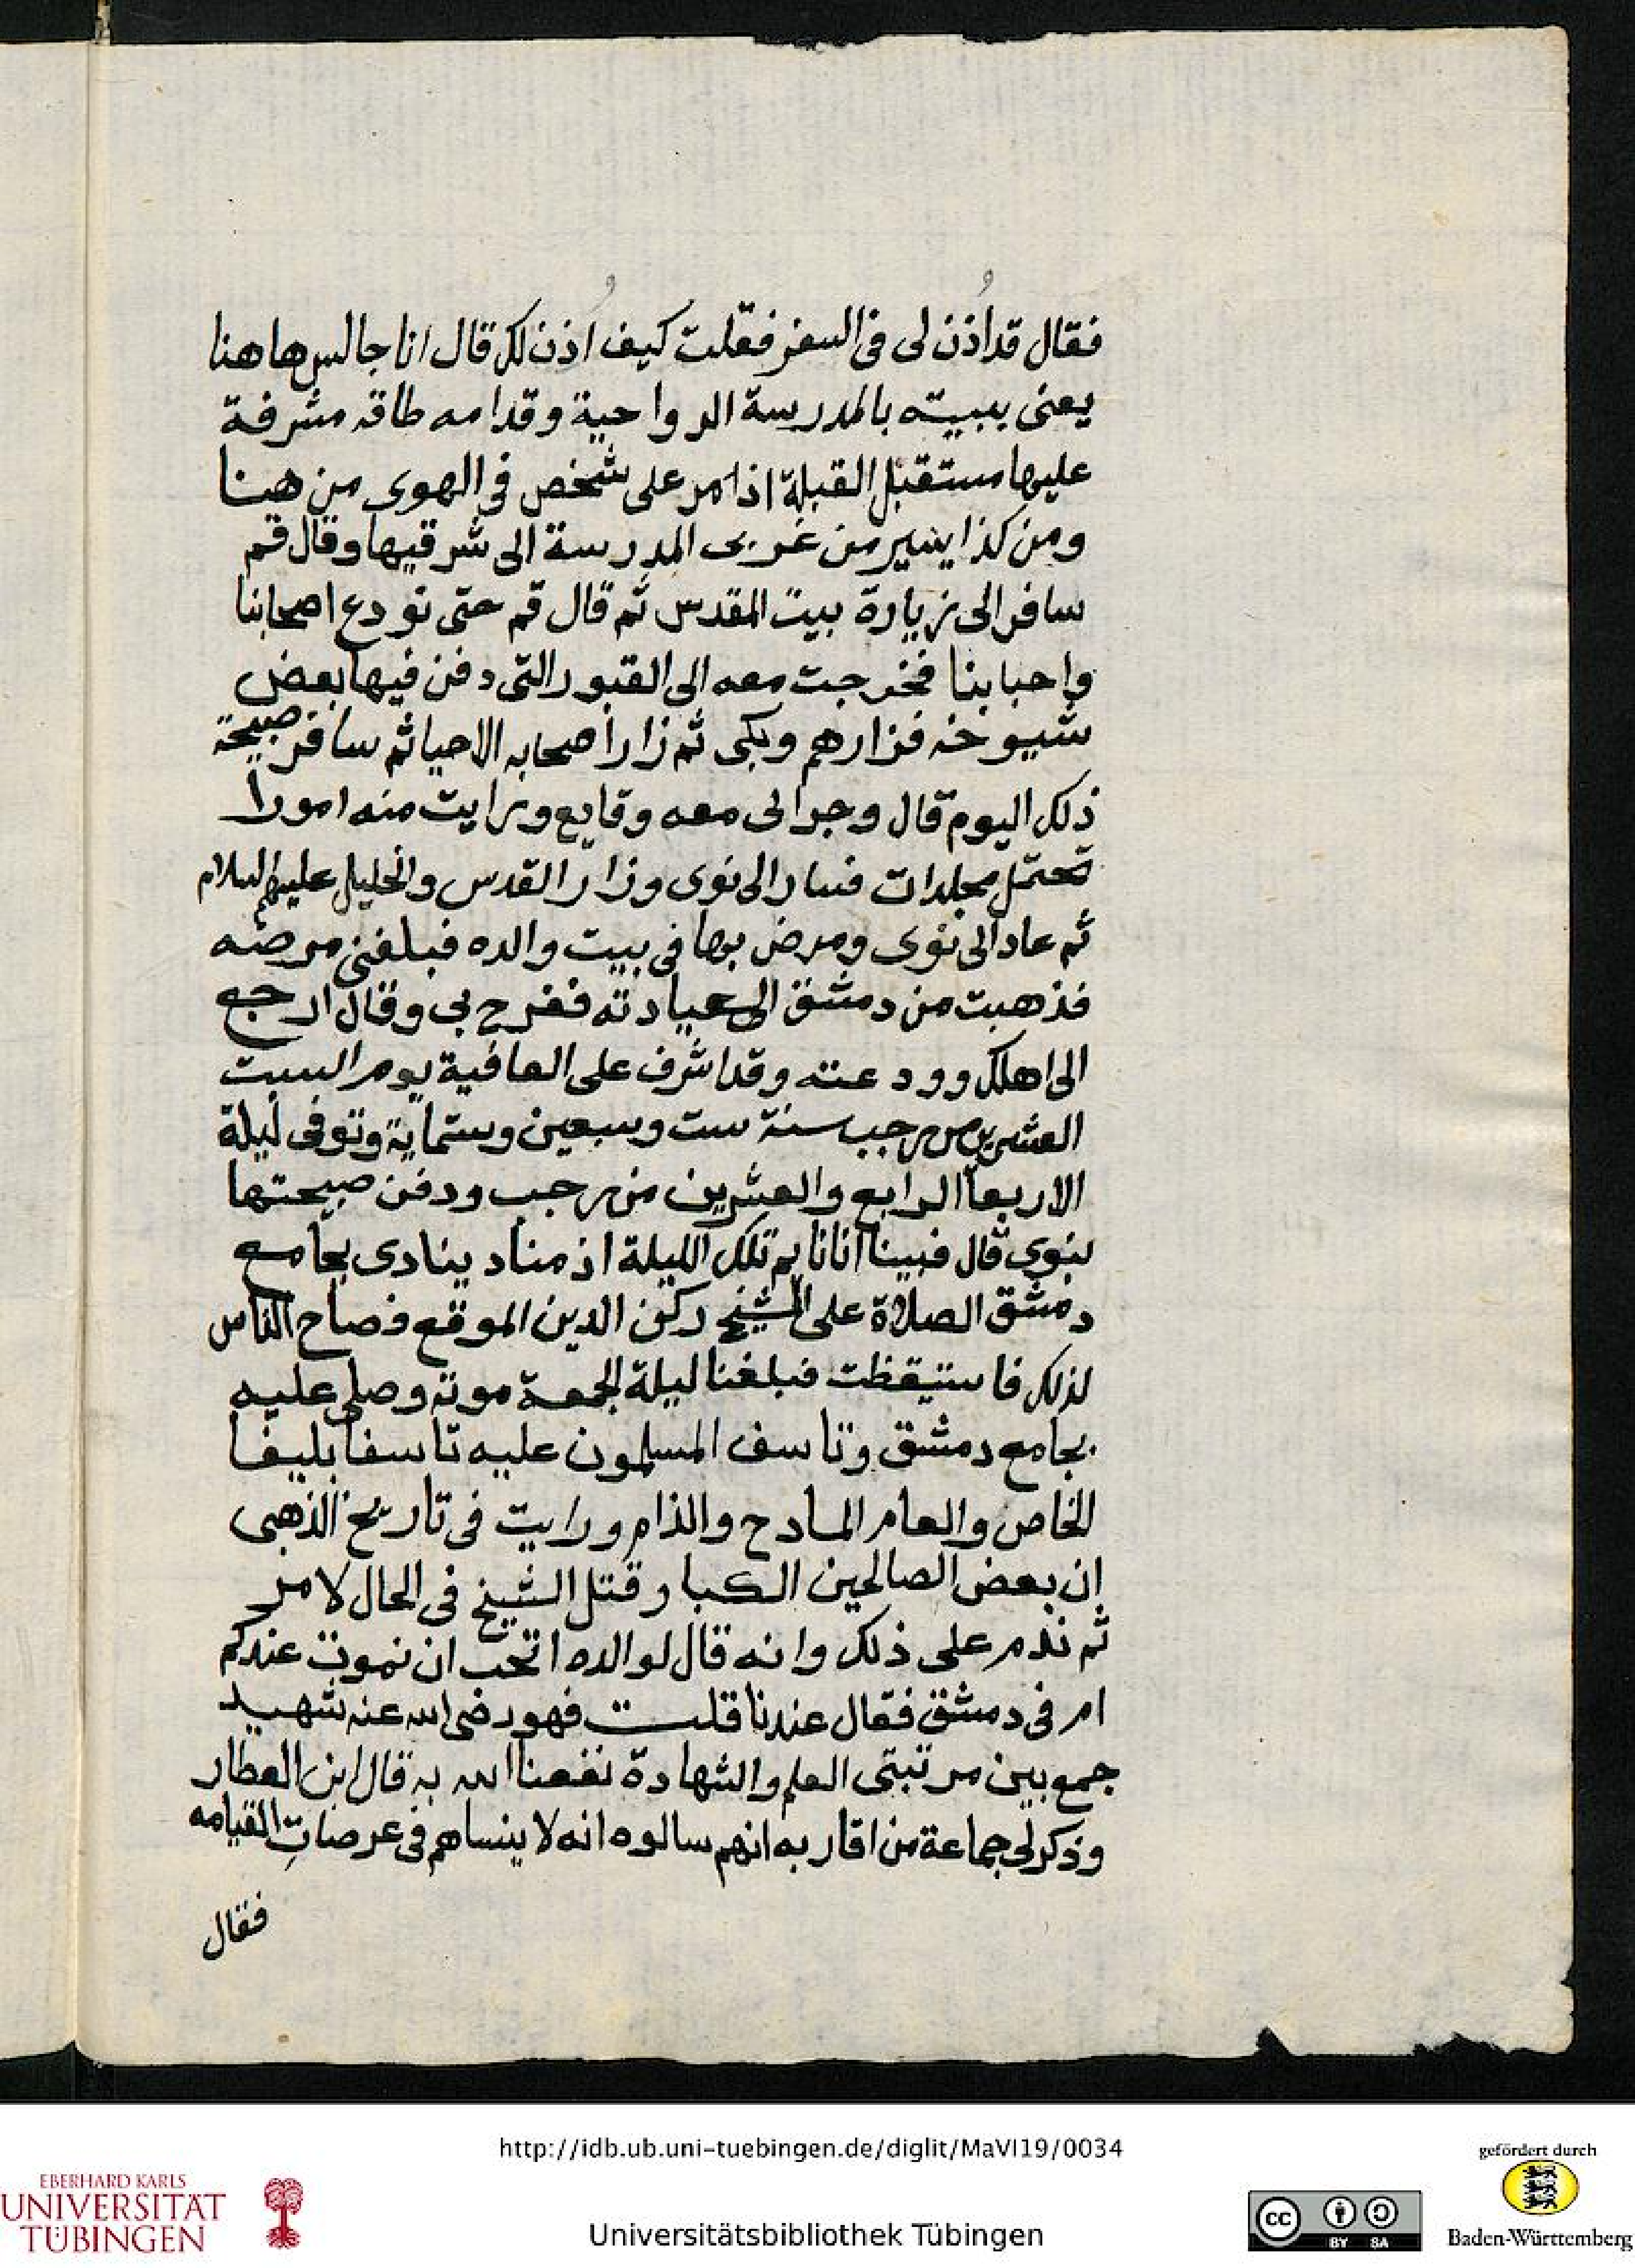 فقال قد اُذن لى فى السفر فقلت كيف اُذن لك قال انا جالس هاهنا
يعنى ببيته بالمدرسة الرواحية وقدامه طاقه مشرفة
عليها مستقبل القبلة اذا مر على شخص فى الهوى من هنا
ومن كذا يسير من غربى المدرسة الى شرقيها وقال قم
سافر الى زيارة بيت المقدس ثم قال قم حتى نودع اصحابنا
واحبابنا فخرجت معه الى القبور التى دفن فيها بعض
شيوخه فزارهم وبكى ثم زار اصحابه الاحيا ثم سافر صبيحة
ذلك اليوم قال وجرا لى معه وقايع ورايت منه امورا
تحتمل مجلدات فسار الى نوى وزار القدس والخليل عليهم السلام
ثم عاد الى نوى ومرض بها فى بيت والده فبلغنى مرضه
فذهبت من دمشق الى عيادته ففرح بى وقال ارجع
الى اهلك وودعته وقد اشرف على العافية يوم السبت
العشرين من رجب سنة ست وسبعين وستماية وتوفى ليلة
الاربعا الرابع والعشرين من رجب ودفن صبيحتها
بنوى قال فبينا انا نايم تلك الليلة اذ مناد ينادى بجامع
دمشق الصلاة على الشيخ ركن الدين الموقع فصاح الناس
لذلك فاستيقظت فبلغنا ليلة الجمعة موته وصلى عليه
بجامع دمشق وتاسف المسلمون عليه تاسفا بليغا
الخاص والعام المادح والذام ورايت فى تاريخ الذهبى
ان بعض الصالحين الكبار قتل الشيخ فى الحال لامر
ثم ندم على ذلك وانه قال لوالده اتحب ان نموت عندكم
ام فى دمشق فقال عندنا قلت فهو رضى الله عنه شهيد
جمع بين مرتبتى العلم والشهادة نفعنا الله به قال ابن العطار
وذكر لى جماعة من اقاربه انهم سالوه انه لا ينساهم فى عرصاتِ القيامه
فقال
http://idb.ub.uni-tuebingen.de/diglit/MaVI19/0034
Universitätsbibliothek Tübingen
EBERHARD KARLS
UNIVERSITÄT
TÜBINGEN
cc
BY SA
gefördert durch
Baden-Württemberg